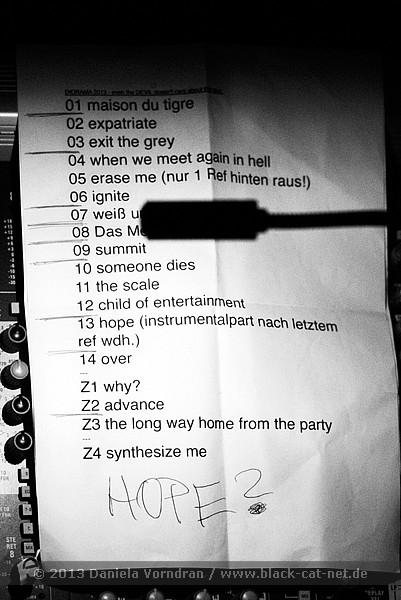 DIORAMA 2013 - even the DEVIL doesn't care about
01 maison du tigre
02 expatriate
03 exit the grey
04 when we meet again in hell
05 erase me (nur 1 Ref hinten raus!)
06 ignite
07 weiß
08 Das
09 summit
10 someone dies
11 the scale
12 child of entertainment
13 hope (instrumentalpart nach letztem
ref wdh.)
14 over
...
Z1 why?
Z2 advance
Z3 the long way home from the party
...
Z4 synthesize me
HOPE?
© 2013 Daniela Vorndran / www.black-cat-net.de